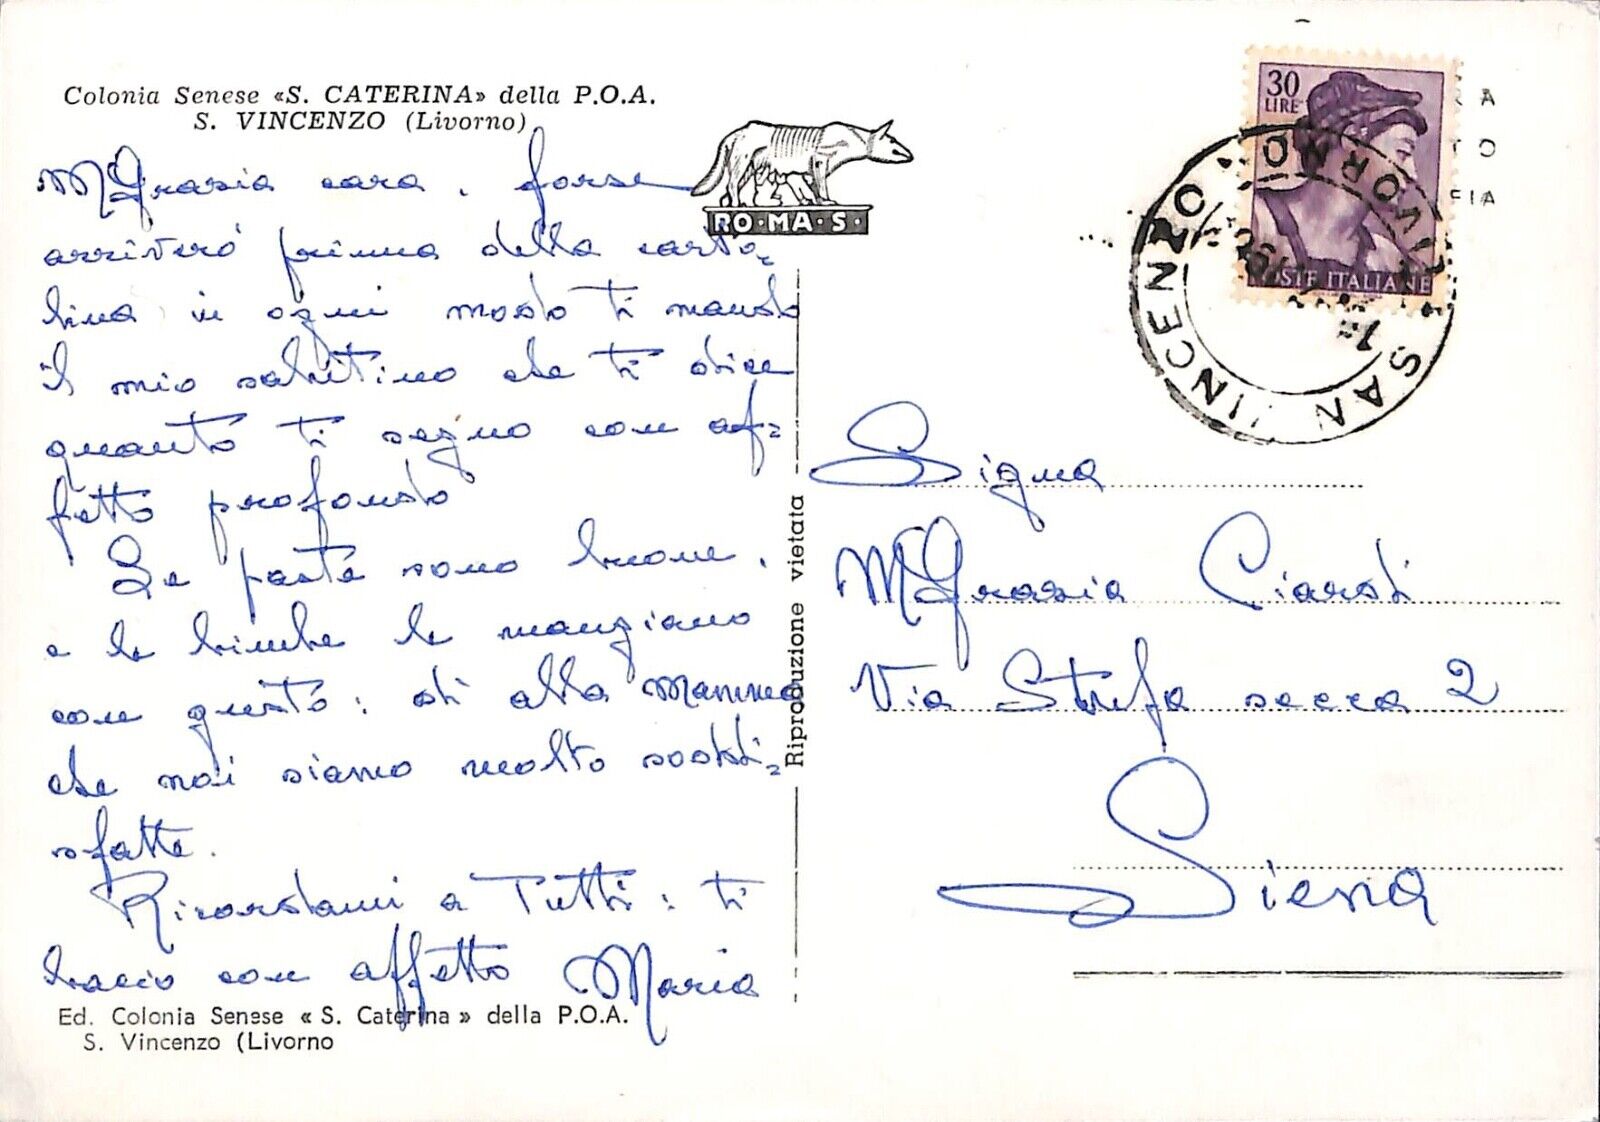 Colonia Senese «S. CATERINA» della P.O.A.
S. VINCENZO (Livorno)
MGrazia cara, forse
arriverò prima della carto=
lina in ogni modo ti mando
il mio salutino che ti dice
quanto ti segno con af=
fetto profondo
Le paste sono buone,
e le bimbe le mangiano
con gusto: di alla Mamma
che noi siamo molto soddi=
sfatte.
Ricordami a Tutti: ti
bacio con affetto Maria
Ed. Colonia Senese «S. Caterina» della P.O.A.
S. Vincenzo (Livorno
RO·MA·S·
Riproduzione vietata
30
LIRE
POSTE ITALIANE
SAN VINCENZO
LIVORNO
Signa
MGrazia Ciardi
Via Stufa secca 2
Siena